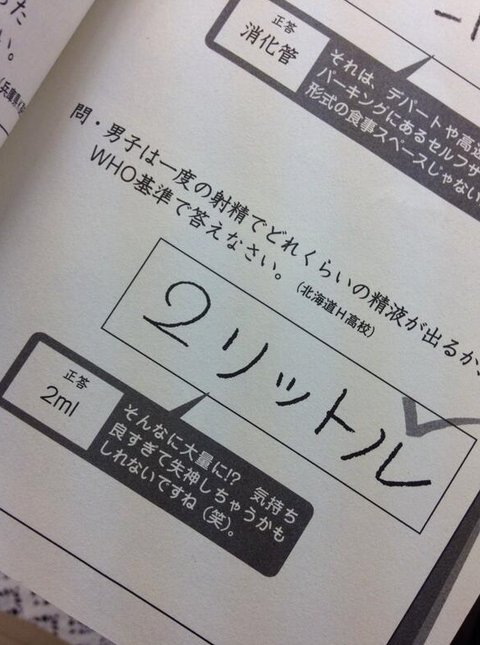 た
い。
正答
消化管
それは、デパートや高速
パーキングにあるセルフサ
形式の食事スペースじゃない
問・男子は一度の射精でどれくらいの精液が出るか、
WHO基準で答えなさい。
(北海道H高校)
2リットル
正答
2ml
そんなに大量に!? 気持ち
良すぎて失神しちゃうかも
しれないですね(笑)。